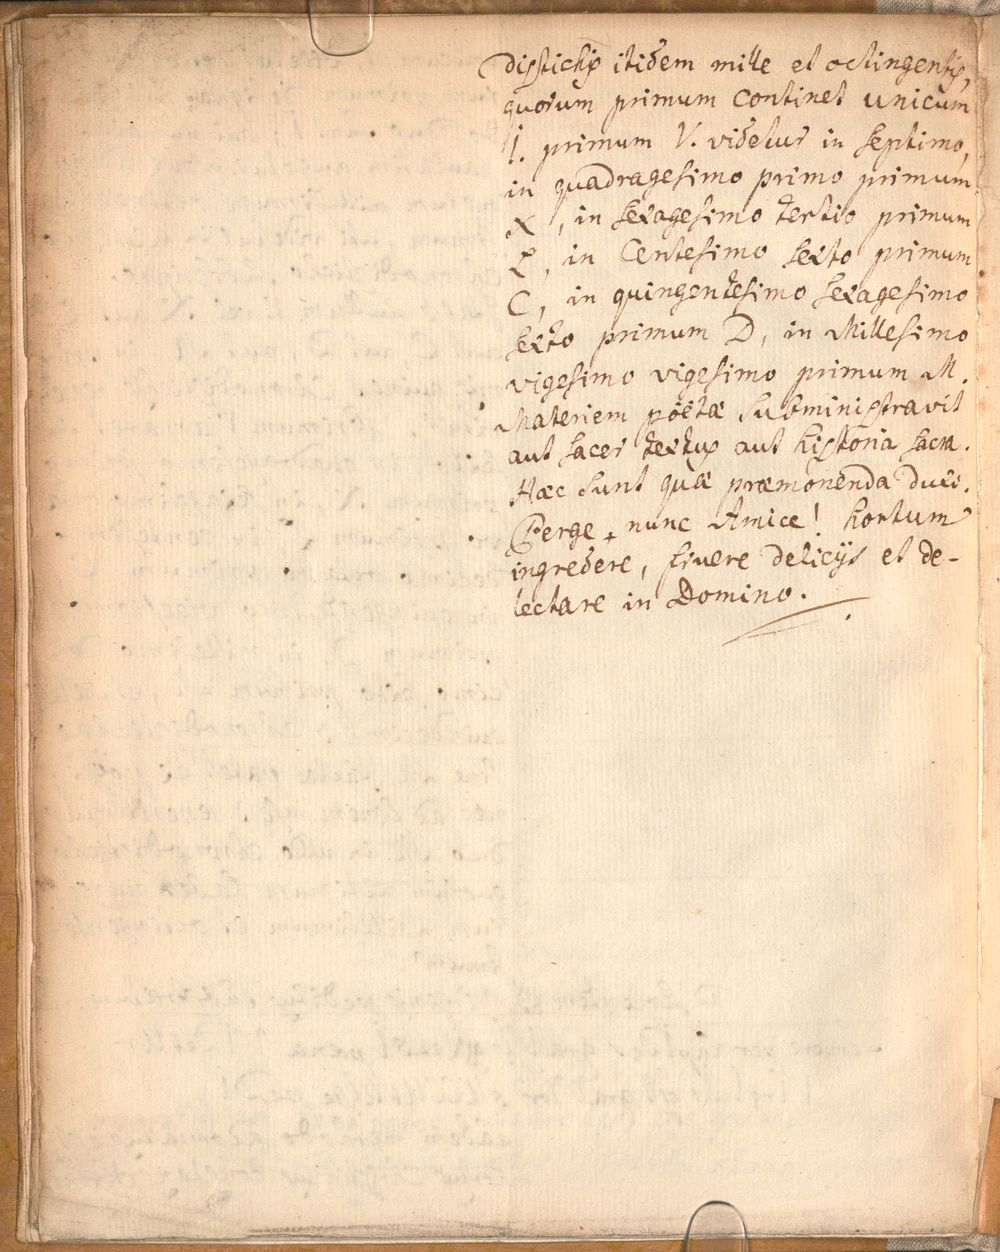 distichis itidem mille et octingentis,
quorum primum continet unicum
I. primum V. videtur in septimo,
in quadragesimo primo primum
X, in sexagesimo tertio primum
L, in Centesimo sexto primum
C, in quingentesimo sexagesimo
sexto primum D, in Millesimo
vigesimo vigesimo primum M.
Materiem pöetæ subministravit
aut sacer textus aut historia sacra.
Hæc sunt quæ præmonenda duxi.
Perge nunc Amice! hortum
ingredere, fruere delicijs et de-
lectare in Domino.